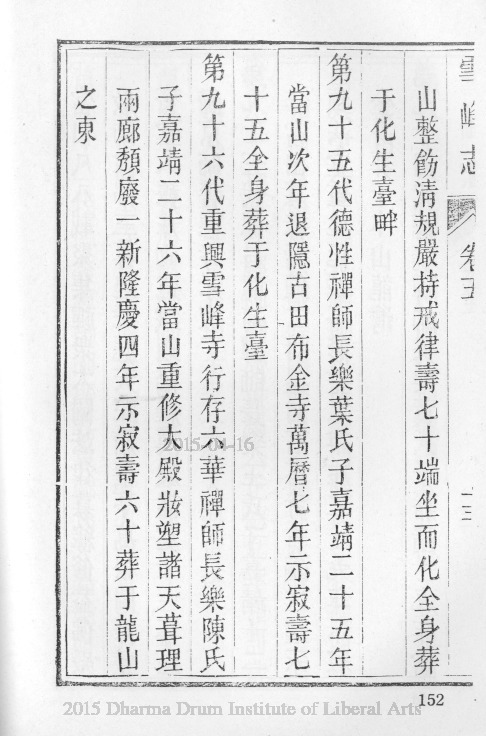 雪峰志 卷五 十三
山整飭淸規嚴持戒律壽七十端坐而化全身葬
于化生臺畔
第九十五代德性禪師長樂葉氏子嘉靖二十五年
當山次年退隱古田布金寺萬曆七年示寂壽七
十五全身葬于化生臺
第九十六代重興雪峰寺行存六華禪師長樂陳氏
子嘉靖二十六年當山重修大殿妝塑諸天葺理
兩廊頹廢一新隆慶四年示寂壽六十葬于龍山
之東
2015-04-16
152
2015 Dharma Drum Institute of Liberal Arts